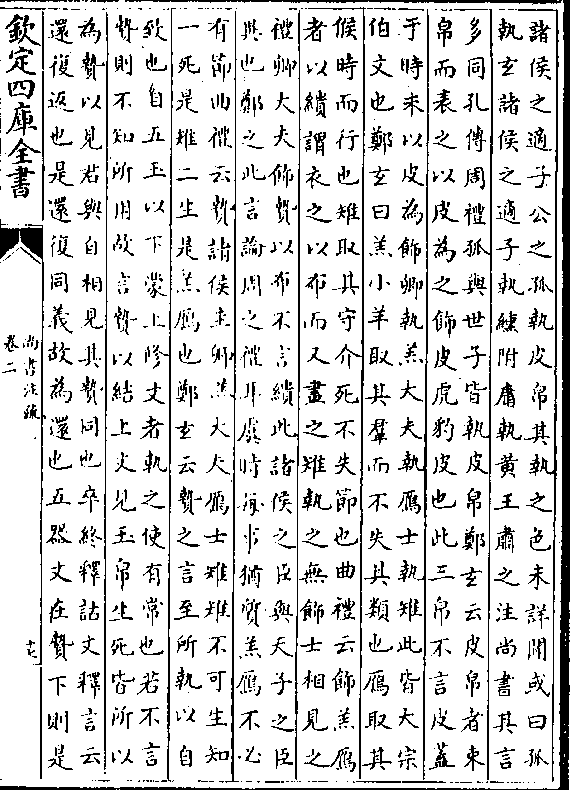 諸侯之適子公之孤執皮帛其執之色未詳聞或曰孤
執玄諸侯之適子執纁附庸執黃王肅之注尚書其言
多同孔傳周禮孤與世子皆執皮帛鄭玄云皮帛者束
帛而表之以皮為之飾皮虎豹皮也此三帛不言皮蓋
于時未以皮為飾卿執羔大夫執雁士執雉此皆大宗
伯文也鄭玄曰羔小羊取其羣而不失其類也雁取其
候時而行也雉取其守介死不失節也曲禮云飾羔雁
者以繢謂衣之以布而又畫之雉執之無飾士相見之
禮卿大夫飾贄以布不言繢此諸侯之臣與天子之臣
異也鄭之此言論周之禮耳虞時每事猶質羔雁不必
有飾曲禮云贄諸侯圭卿羔大夫雁士雉雉不可生知
一死是雉二生是羔雁也鄭玄云贄之言至所執以自
致也自五玉以下蒙上修文者執之使有常也若不言
贄則不知所用故言贄以結上文見玉帛生死皆所以
為贄以見君與自相見其贄同也卒終釋詁文釋言云
還復返也是還復同義故為還也五器文在贄下則是
欽定四庫全書
尚書注疏
卷二